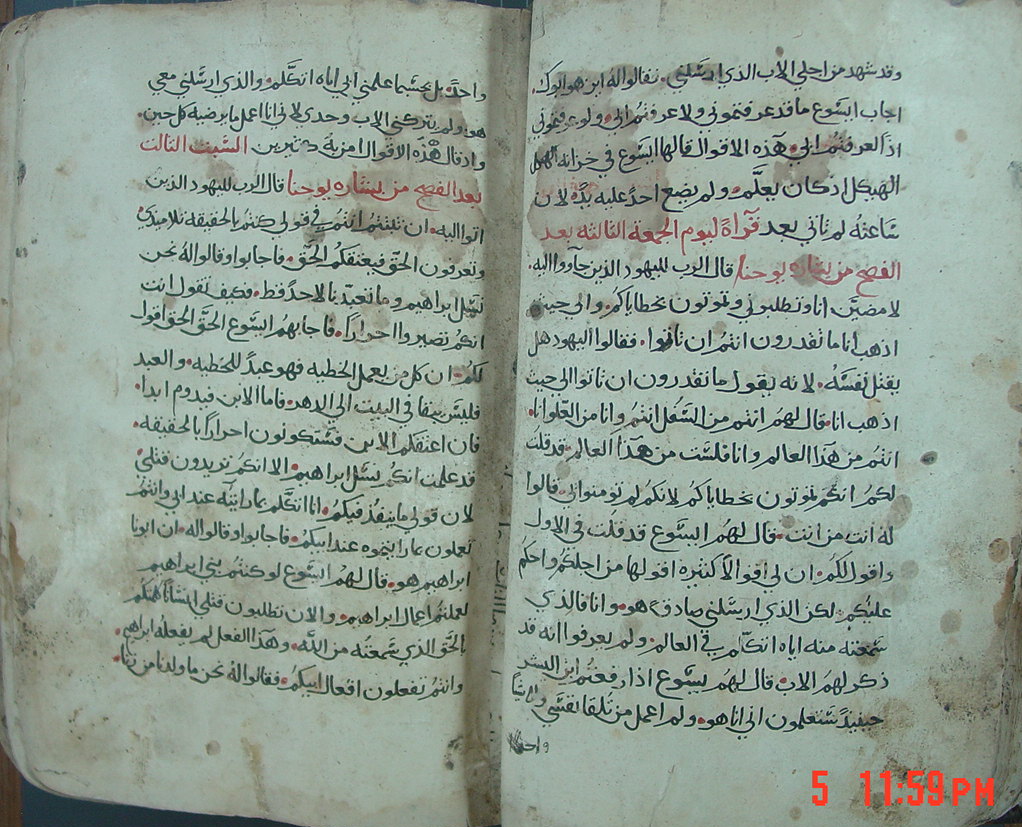 وقد شهد من اجلي الاب الذي ارسلني. فقالوا له اين هو ابوك.
اجاب ايسوع ما قد عرفتموني ولا عرفتم ابي. ولو عرفتموني
اذًا لعرفتم ابي. هذه الاقوال قالها ايسوع في خزانه الهيكل
الهيكل اذ كان يعلّم. ولم يضع احدٌ عليه يدًه لان
ساعته لم تاتي بعد قرآة ليوم الجمعة الثالثه بعد
الفصح من بشاره يوحنا قال الرب لليهود الذين جآووا اليه.
لامضينّ انا وتطلبوني وتموتون بخطاياكم. والى حيث
اذهب انا ما تقدرون انتم ان تاتوا. فقالوا اليهود هل
يقتل نفسه. لانه يقول ما تقدرون ان تاتوا الى حيث
اذهب انا. قال لهم انتم من السفل انتم وانا من العلو انا.
انتم من هذا العالم وانا فلست من هذا العالم. قد قلت
لكم انكم تموتون بخطاياكم لانكم لم تومنوا بي. قالوا
له انت من انت. قال لهم ايسوع قد قلت في الاول
واقول لكم. ان لي اقوالاً كثيره اقولها من اجلكم واحكم
عليكم. لكن الذي ارسلني صادق هو. وانا فالذي
سمعته منه اياه اتكلم في العالم. ولم يعرفوا انه قد
ذكر لهم الاب. قال لهم يسوع اذا رفعتم ابن البشر
حينيذٍ ستعلمون اني انا هو. ولم اعمل من تلقا نفسي ولا شيًا
واحدًا
واحدًا. بل بحسبما علمني ابي اياه اتكلم. والذي ارسلني معي
هو. ولم يتركني الاب وحدي لاني انا اعمل ما يرضيه كل حين.
واذ قال هذه الاقوال امن به كثيرين السبت الثالث
بعد الفصح من بشاره يوحنا قال الرب لليهود الذين
اتوا اليه. ان تثبتم انتم في قولي كنتم بالحقيقه تلاميذي
وتعرفون الحق فيعتقكم الحق. فاجابوا وقالوا له نحن
نسل ابراهيم وما تعبدنا لاحد قط. فكيف تقول انت
انكم تصيروا احرارًا. فاجابهم ايسوع الحق الحق اقول
لكم. ان كل من يعمل الخطيه فهو عبدٌ للخطيه. والعبد
فليس يبقا في البيت الي الدهر. فاما الابن فيدوم ابدا.
فان اعتقكم الابن فستكونون احرارًا بالحقيقه.
قد علمت انكم نسل ابراهيم. الا انكم تريدون قتلي
لان قولي ما ينفذ فيكم. انا اتكلم بما رايته عند ابي وانتم
تعملون بما رايتموه عند ابيكم. فاجابوا وقالوا له. ان ابونا
ابراهيم هو. قال لهم ايسوع لو كنتم بني ابراهيم
لعملتم اعمال ابراهيم. والان تطلبون قتلي انسانًا كلمكم
بالحق الذي سمعته من الله. وهذا الفعل لم يفعله ابراهيم.
وانتم تفعلون افعال ابيكم. فقالوا له نحن ما ولدنا من زنا.
5 11:59 PM